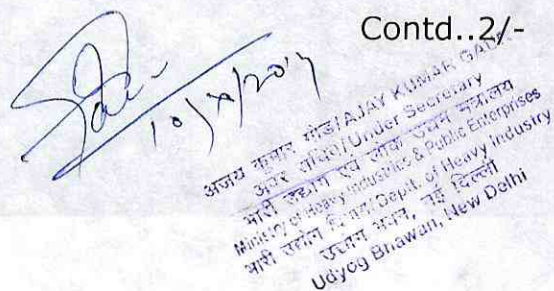 Contd..2/-
10/10/2017
अजय कुमार गौड/AJAY KUMAR GAUR
अवर सचिव/Under Secretary
भारी उद्योग एवं लोक उद्यम मंत्रालय
Ministry of Heavy Industries & Public Enterprises
भारी उद्योग विभाग/Deptt. of Heavy Industry
उद्योग भवन, नई दिल्ली
Udyog Bhawan, New Delhi